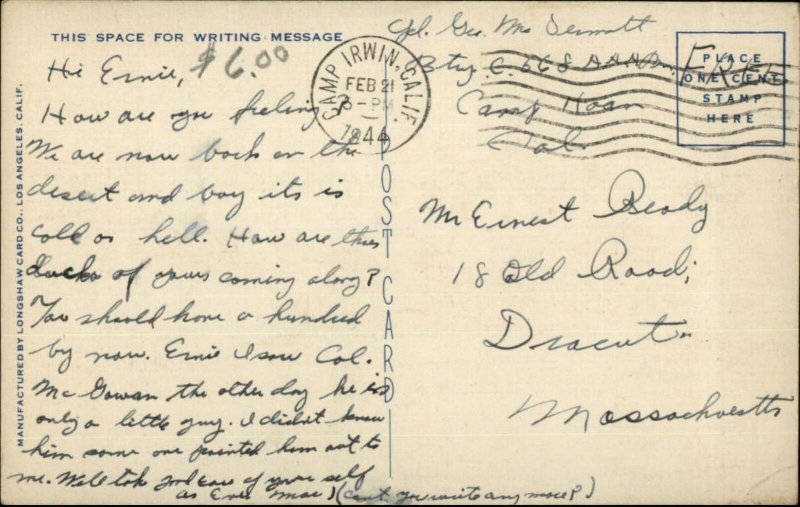 THIS SPACE FOR WRITING MESSAGE
$6.00
Hi Ernie,
How are you feeling
We are now back on the
desert and boy its is
cold as hell. How are those
ducks of yours coming along?
You should have a hundred
by now. Ernie I saw Col.
McGowan the other day he is
only a little guy. I didn't know
him some one pointed him out to
me. Well take good care of your self
as Ever Mac (can't you write any more?)
MANUFACTURED BY LONGSHAW CARD CO., LOS ANGELES, CALIF.
POST CARD
CAMP IRWIN, CALIF.
FEB 21
3-PM
1944
Cpl. Geo. Mc Dermott
Btry. C. 668 AAA Bn.
Camp Haan
Cal.
FREE
PLACE
ONE CENT
STAMP
HERE
Mr Ernest Beady
18 Old Road;
Dracut
Massachusetts